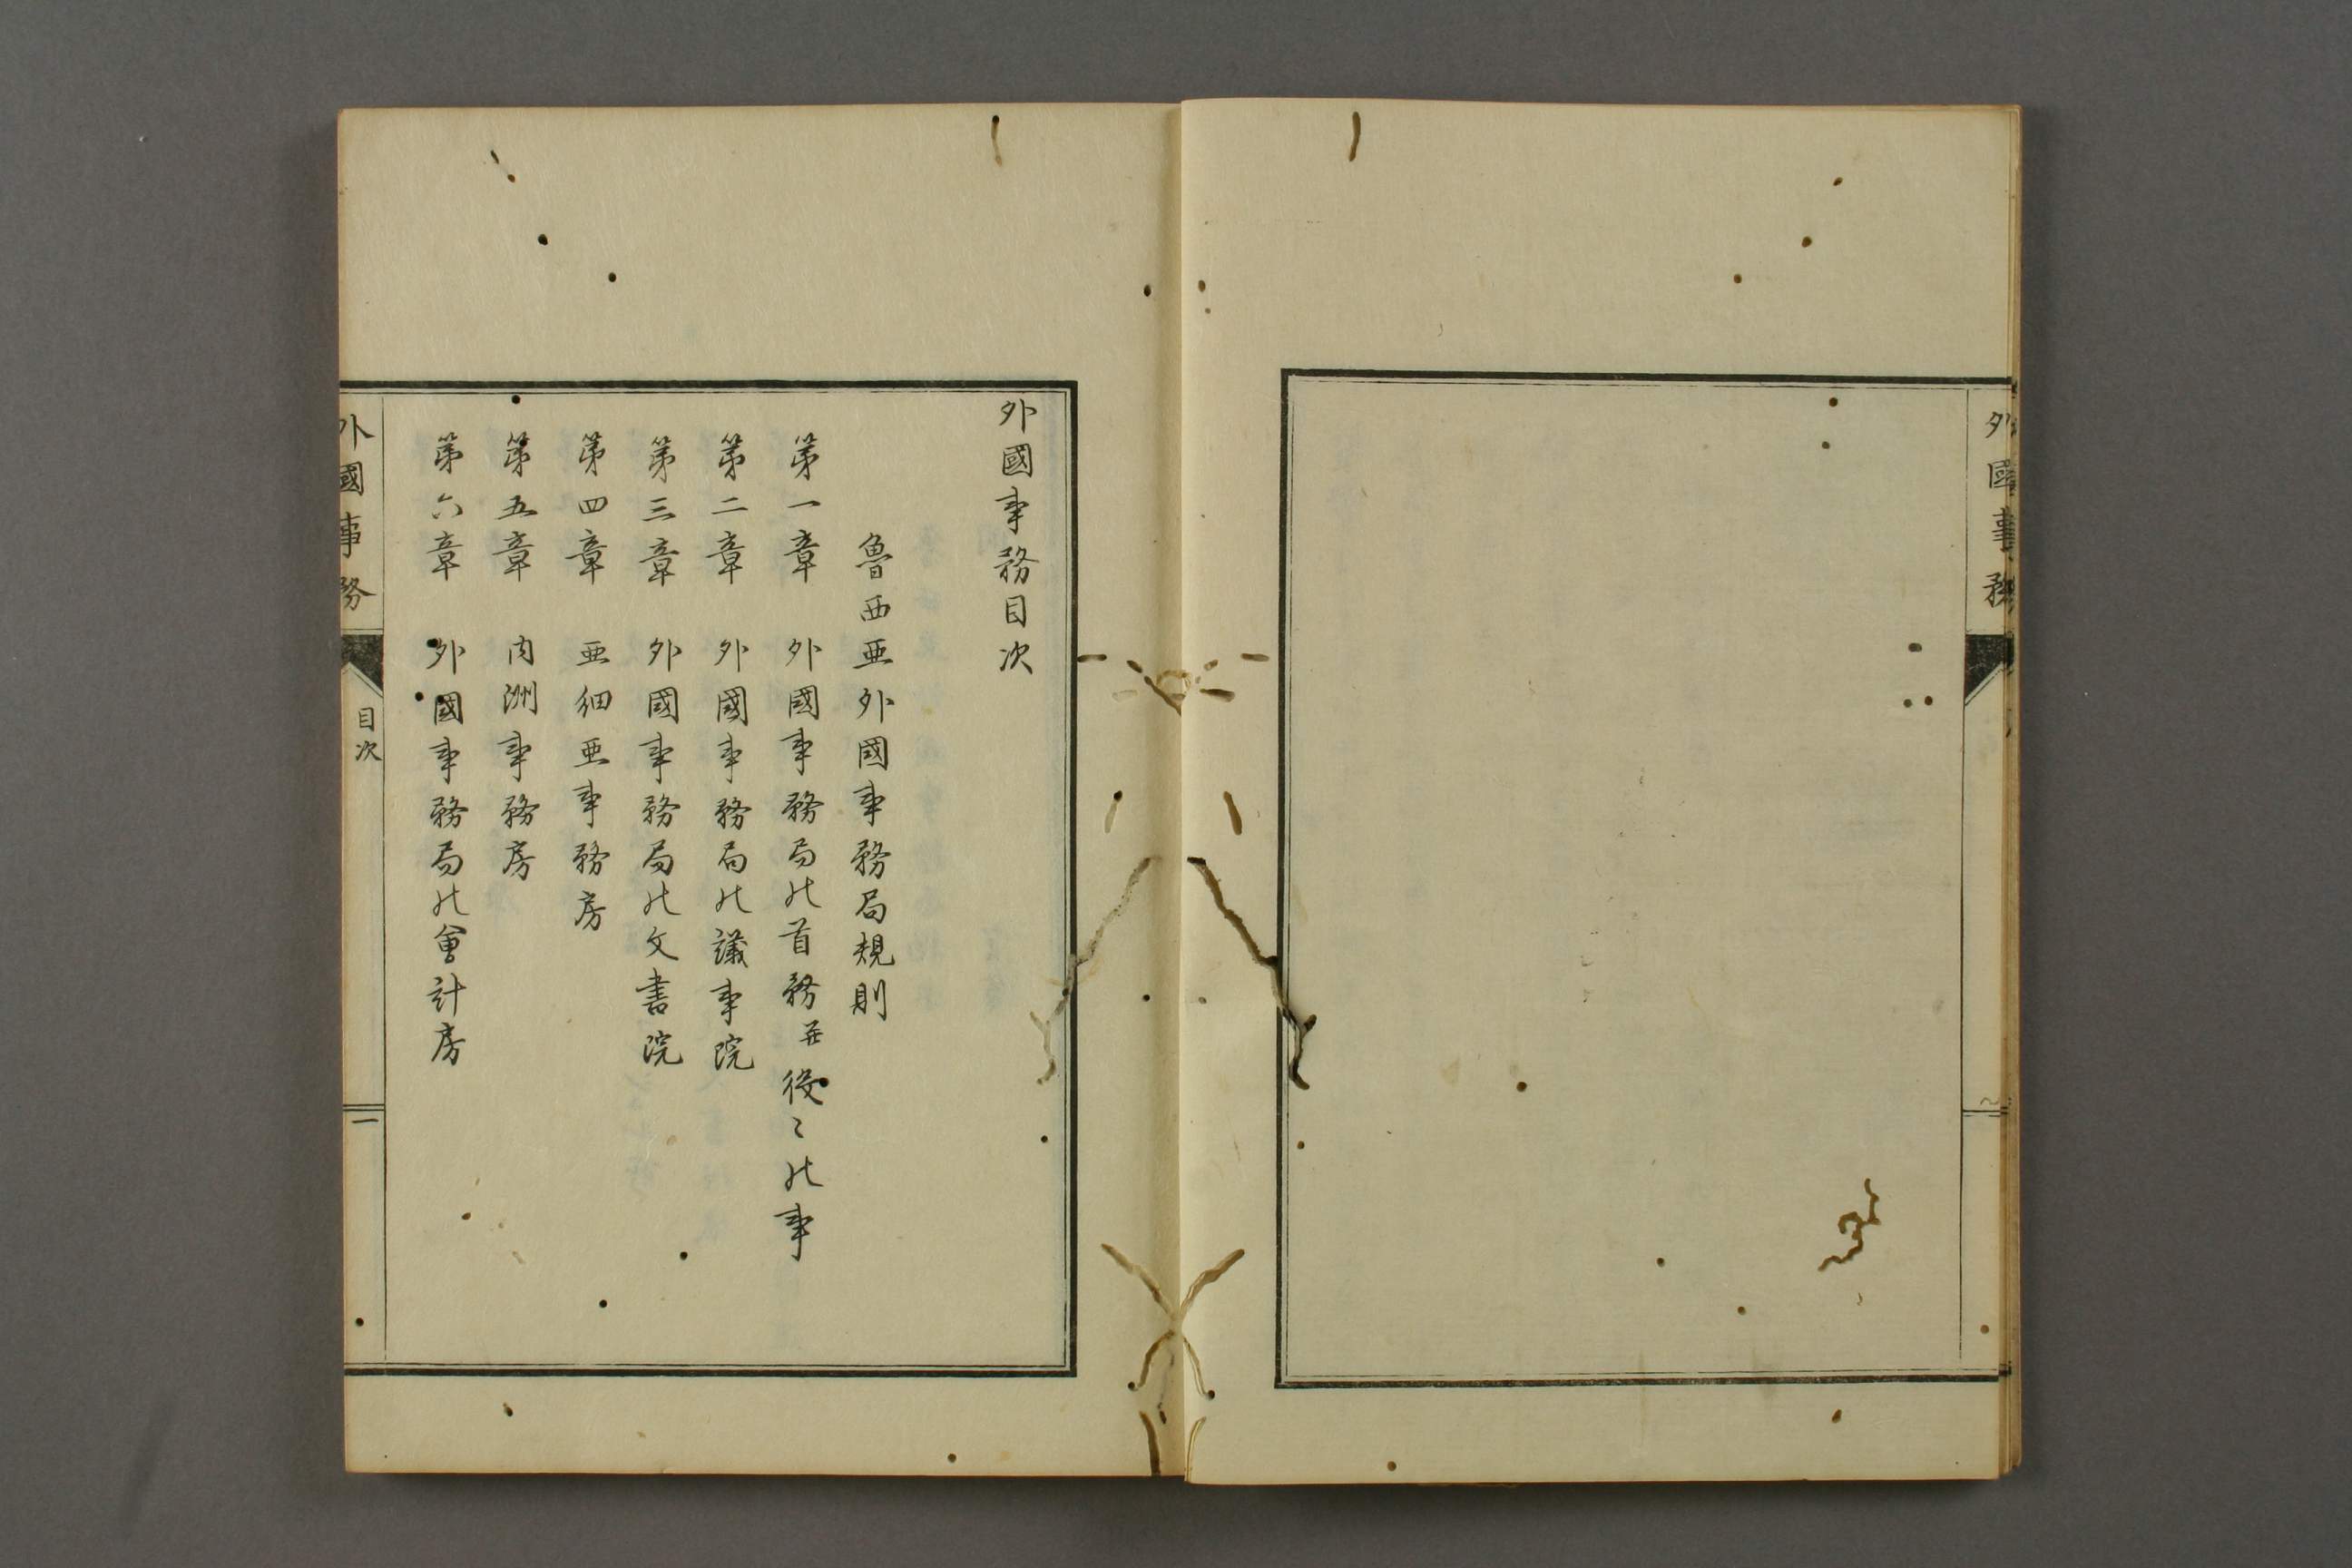 外國事務
外國事務目次
魯西亜外國事務局規則
第一章 外國事務局の首務并役々の事
第二章 外國事務局の議事院
第三章 外國事務局の文書院
第四章 亜細亜事務房
第五章 内洲事務房
第六章 外國事務局の會計房
外國事務
目次
一